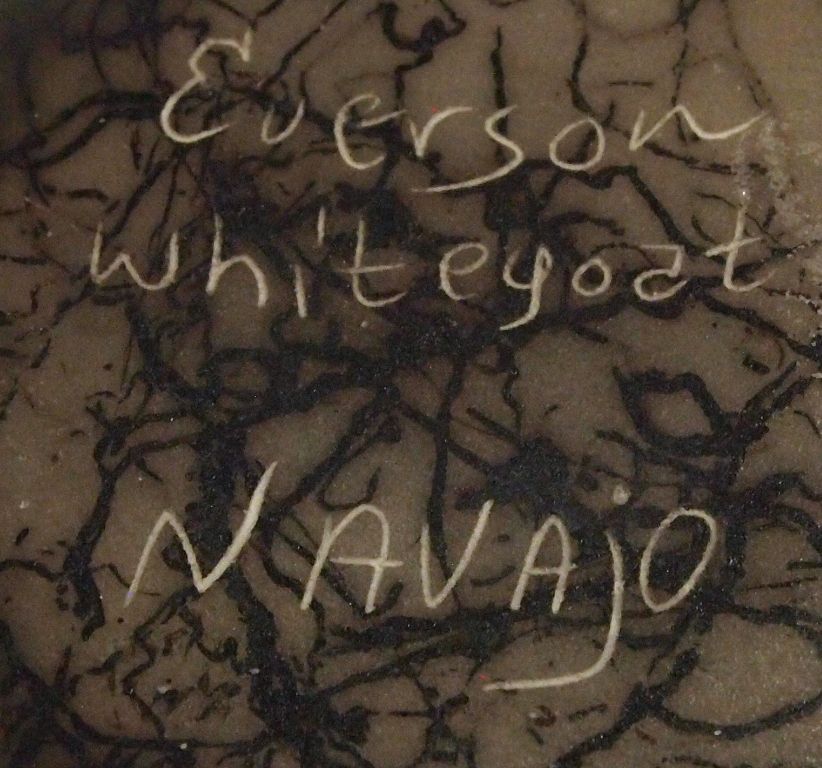 Everson
whitegoat
NAVAjO